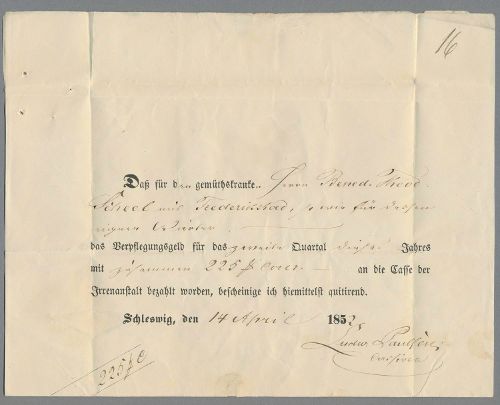 16
Daß für den gemüthskranken Herrn Bened. Theod.
Scheel aus Frederikstad, sowie für dessen
eignen Wärter
das Verpflegungsgeld für das zweite Quartal dieses Jahres
mit zusammen 225 ₰ Cour. an die Casse der
Irrenanstalt bezahlt worden, bescheinige ich hiemittelst quitirend.
Schleswig, den 14 April 1852.
Ludw. Paulsen
Cassirer
225 ₰ C